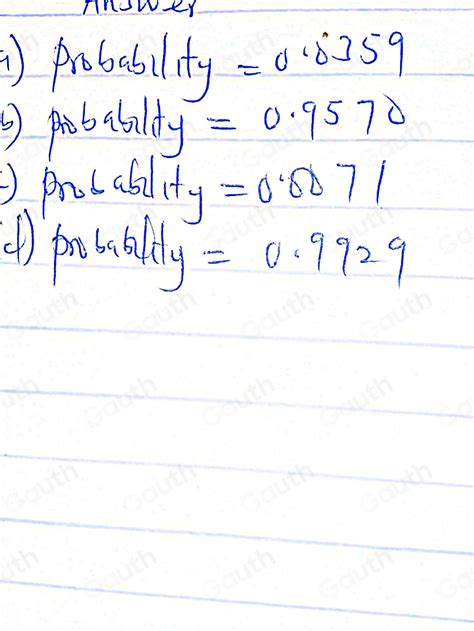 Answer
a) probability = 0.0359
b) probability = 0.9570
c) probability = 0.0071
d) probability = 0.9929
Gauth